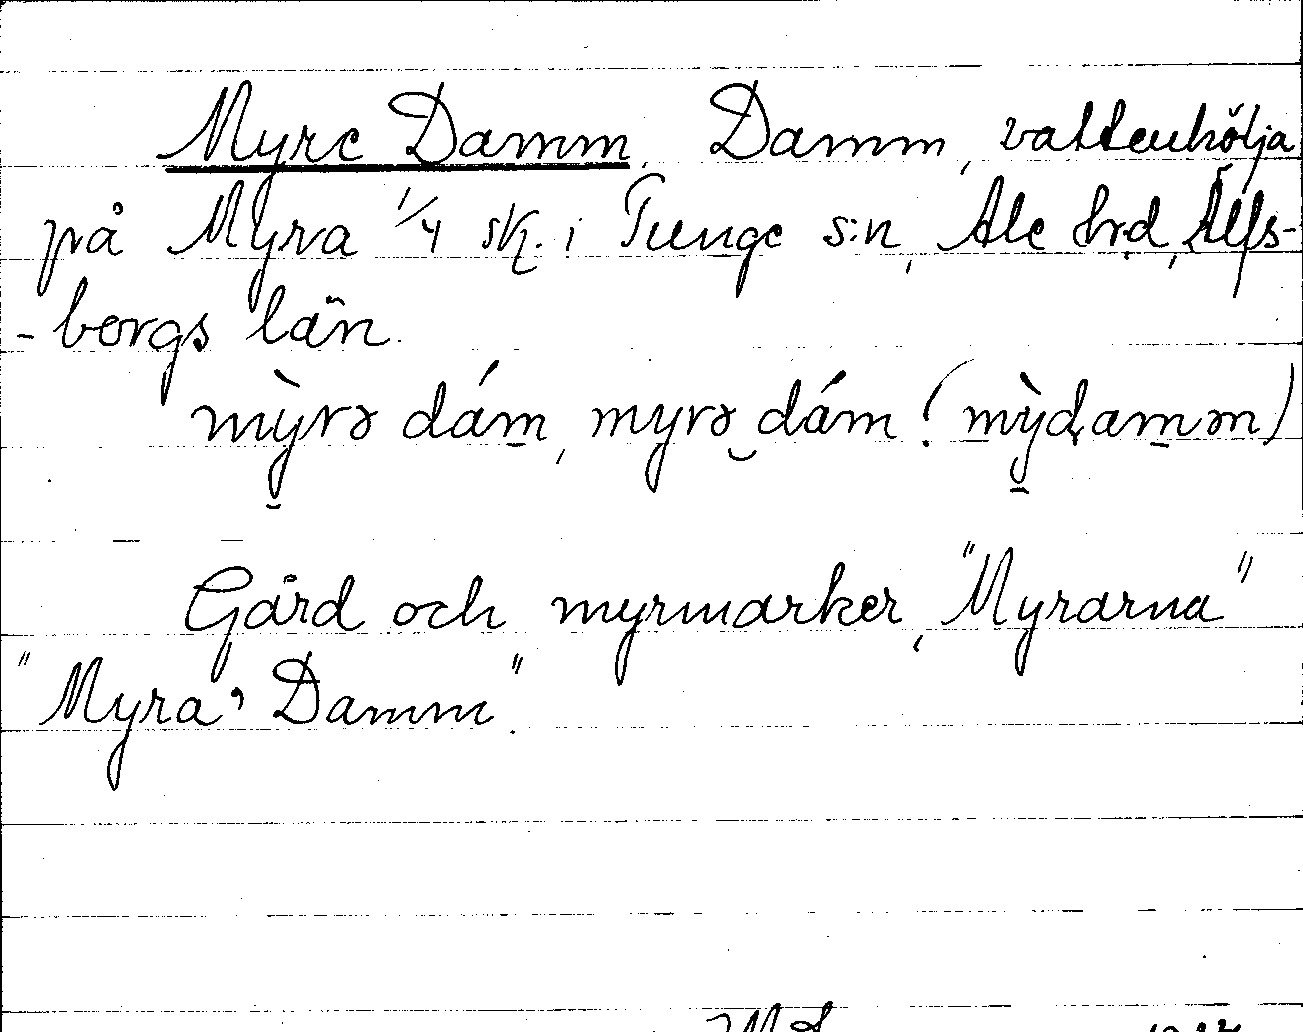 Myre Damm, Damm, vattenhölja
på Myra 1/4 sk. i Tunge s:n, Ale hrd, Älfs-
-borgs län.
mỳrə dám, myrə dám! (mỳdamən)
Gård och myrmarker, "Myrarna"
"Myra, Damm".